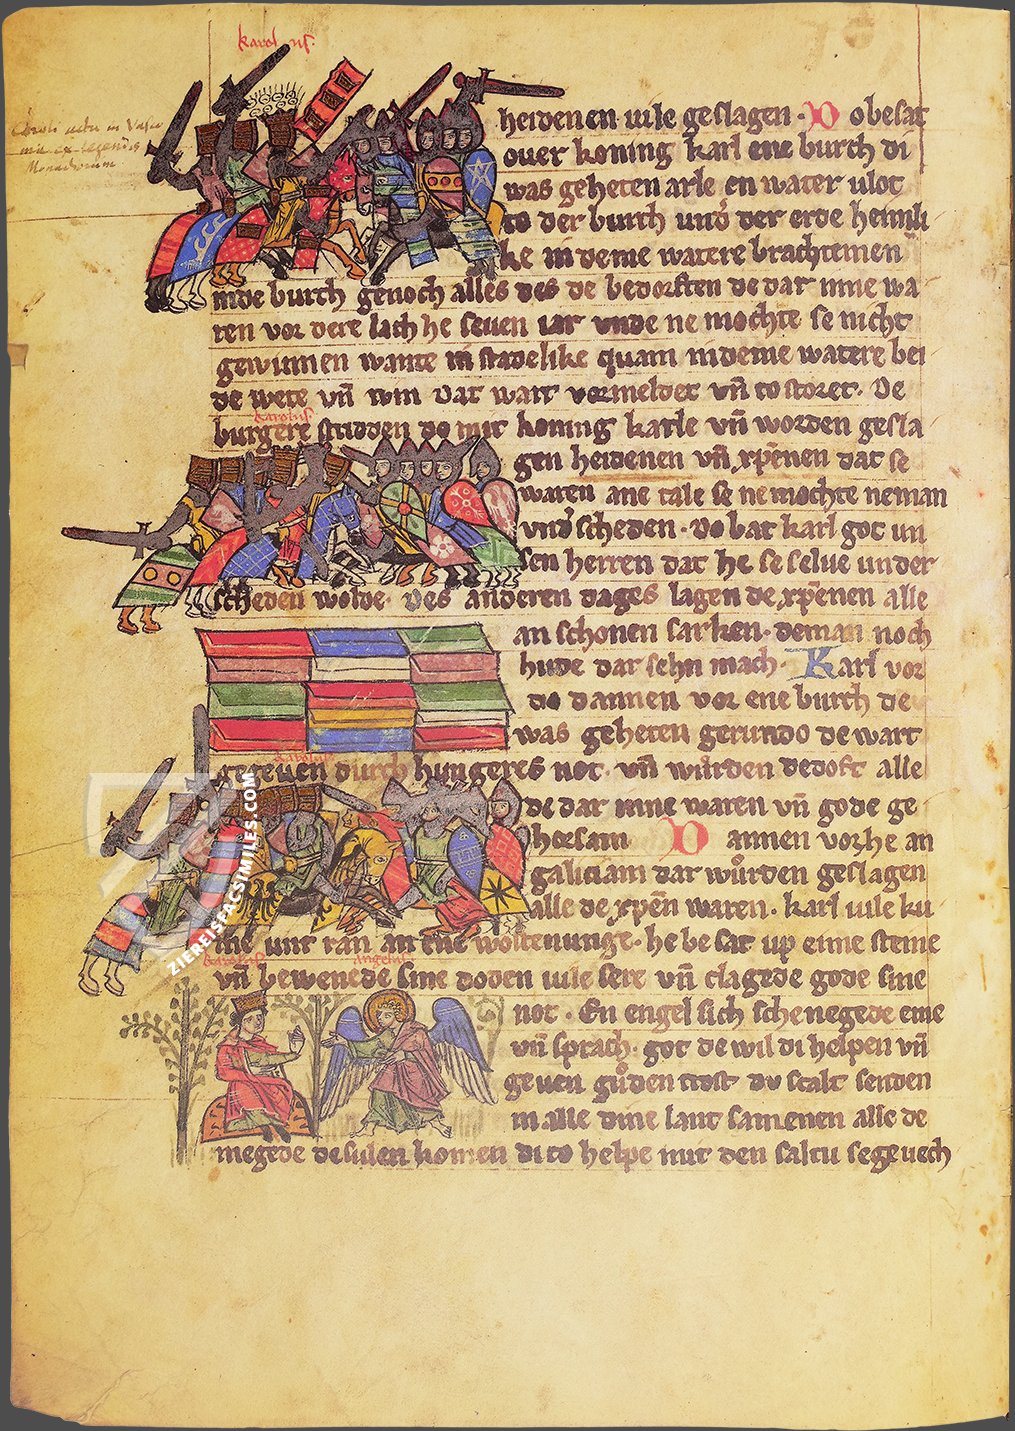 karolus.
heidenen uile geslagen · Do besat
ouer koning karl ene burch di
was geheten arle en water vlot
to der burch und' der erde heimli
ke in deme watere brachtemen
inde burch genoch alles des de bedorften de dar inne wa
ren vor dere lach he seuen iar unde ne mochte se nicht
gewinnen wante in stadelike quam in deme watere bei
de wete vn̄ win Dat wart vormeldet vn̄ to storet · De
karolus.
burgere stridden do mit koning karle vn̄ worden gesla
gen heidenen vn̄ xp̄enen dat se
waren ane tale se ne mochte neman
vnd'scheden · Do bat karl got un
sen herren dat he se selue under
scheden wolde · Des anderen dages lagen de xp̄enen alle
an schonen sarken · deman noch
hude dar sehn mach · Karl vor
do dannen vor ene burch de
was geheten gerundo de wart
karolus
gegeuen durch hungeres not · vn̄ wůrden dedoft alle
de dar inne waren vn̄ gode ge
horsam Dannen vor he an
galiciam dar wůrden geslagen
alle de xp̄en waren · karl uile ku
me unt ran an ene wostenunge · he besat up eine steine
karolus angelus
vn̄ bewenede sine doden uile sere vn̄ clagede gode sine
not · En engel sich schenegede eme
vn̄ sprach · got de wil di helpen vn̄
geuen gůden trost du scalt senden
in alle dine lant samenen alle de
megede de sulen komen di to helpe mit den saltu segeuech
Caroli in
Monachorum
ZIEREISFACSIMILES.COM